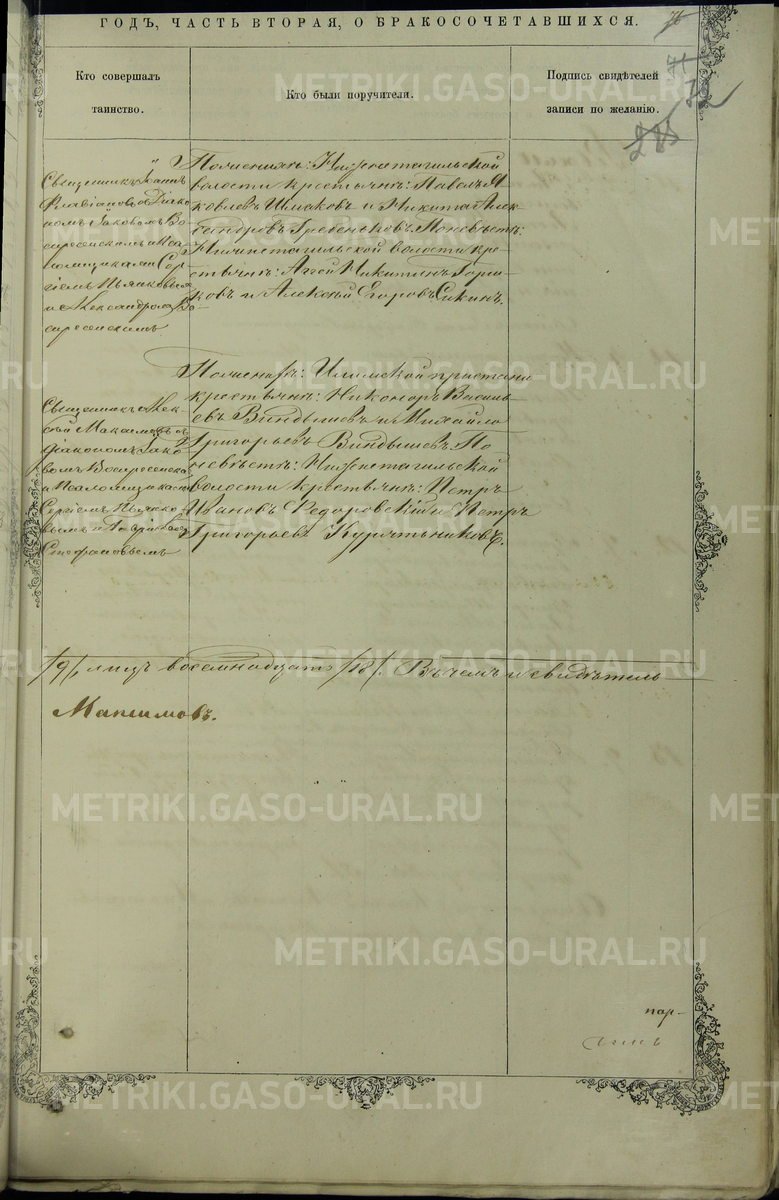 ГОДЪ, ЧАСТЬ ВТОРАЯ, О БРАКОСОЧЕТАВШИХСЯ.
71
72
Кто совершалъ таинство.
Кто были поручители.
Подпись свидѣтелей записи по желанію.
Священникъ Іоаннъ
Флавіановъ съ Діако-
номъ Іаковомъ Во-
скресенскимъ и Пса-
ломщиками Сер-
гіемъ Пьянковымъ
и Александромъ Во-
скресенскимъ
По женихѣ: Нижнетагильской
волости крестьяне: Павелъ Я-
ковлевъ Шмаковъ и Никита Алек-
сандровъ Гребенковъ. По невѣстѣ:
Нижнетагильской волости кре-
стьяне: Аггей Никитинъ Горш-
ковъ и Алексѣй Егоровъ Сикинъ.
Священникъ Алек-
сѣй Максимовъ съ
діакономъ Іако-
вомъ Воскресенскимъ
и Псаломщиками
Сергіемъ Пьянко-
вымъ и
Стефановымъ
По женихѣ: Илимской пристани
крестьяне: Никоноръ Василь-
евъ Виндышевъ и Михайло
Григорьевъ Виндышевъ. По
невѣстѣ: Нижнетагильской
волости крестьяне: Петръ
Ивановъ Федоровскій и Петръ
Григорьевъ Курятниковъ.
/9/, лицъ восемнадцать /18/. Въ чемъ и свидѣтель
Максимовъ.
METRIKI.GASO-URAL.RU